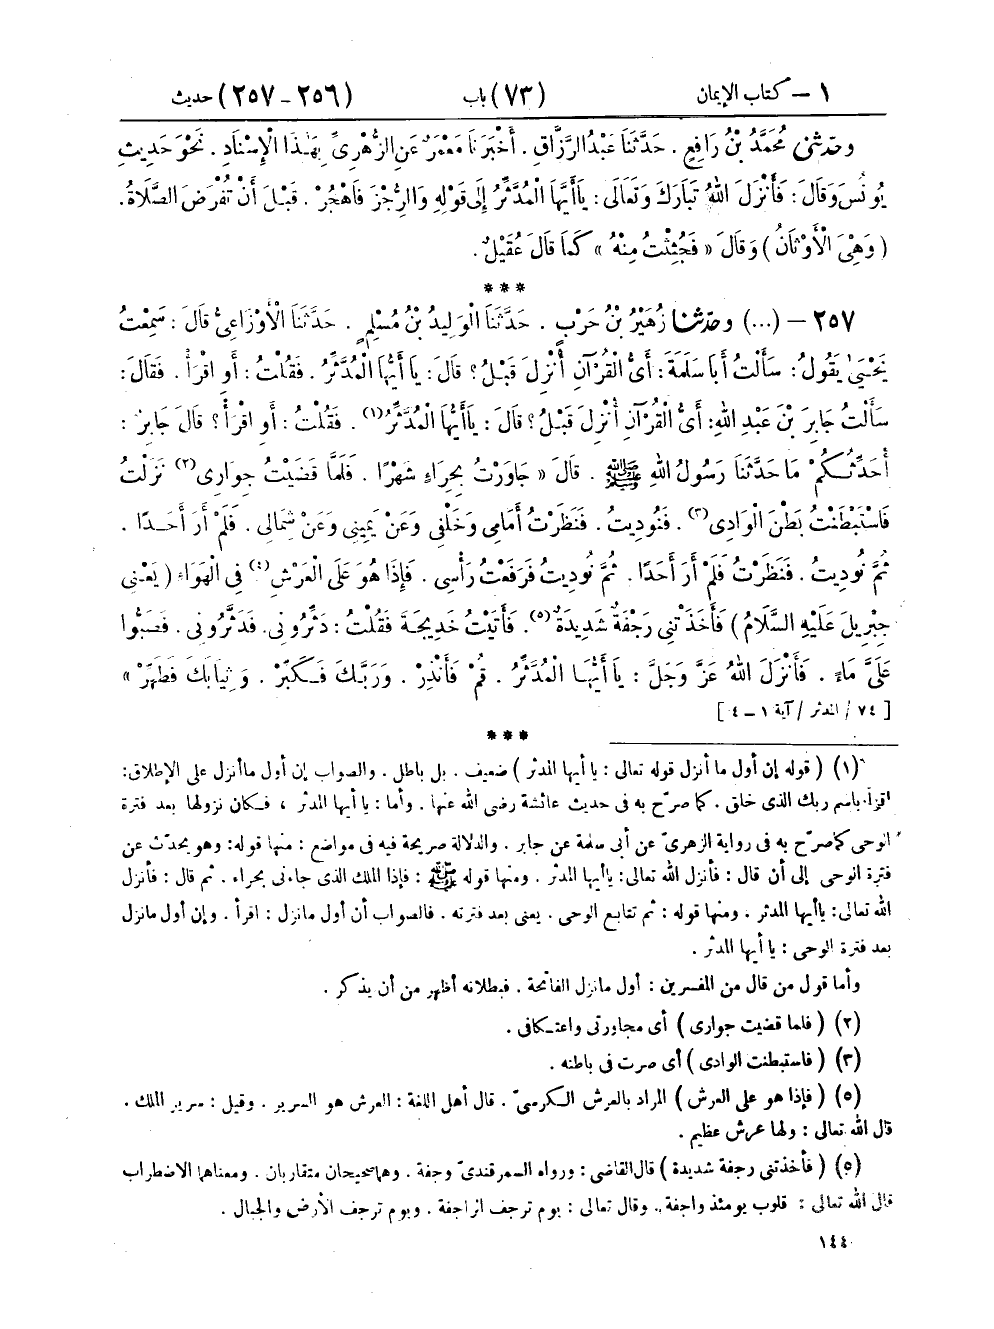 ١ – كتاب الإيمان (٧٣) باب (٢٥٦ – ٢٥٧) حديث
وحدثني مُحَمَّدُ بْنُ رَافِعٍ . حَدَّثَنَا عَبْدُ الرَّزَّاقِ . أَخْبَرَنَا مَعْمَرٌ عَنِ الزُّهْرِيِّ بِهَٰذَا الْإِسْنَادِ . نَحْوَ حَدِيثِ
يُونُسَ وَقَالَ : فَأَنْزَلَ اللهُ تَبَارَكَ وَتَعَالَى : يَا أَيُّهَا الْمُدَّثِّرُ إِلَى قَوْلِهِ وَالرُّجْزَ فَاهْجُرْ . قَبْلَ أَنْ تُفْرَضَ الصَّلَاةُ .
( وَهِيَ الْأَوْثَانُ ) وَقَالَ « فَجُئِثْتُ مِنْهُ » كَمَا قَالَ عُقَيْلٌ .
***
٢٥٧ – (...) وحدثنا زُهَيْرُ بْنُ حَرْبٍ . حَدَّثَنَا الْوَلِيدُ بْنُ مُسْلِمٍ . حَدَّثَنَا الْأَوْزَاعِيُّ قَالَ : سَمِعْتُ
يَحْيَىٰ يَقُولُ : سَأَلْتُ أَبَا سَلَمَةَ : أَيُّ الْقُرْآنِ أُنْزِلَ قَبْلُ ؟ قَالَ : يَا أَيُّهَا الْمُدَّثِّرُ . فَقُلْتُ : أَوِ اقْرَأْ . فَقَالَ :
سَأَلْتُ جَابِرَ بْنَ عَبْدِ اللهِ : أَيُّ الْقُرْآنِ أُنْزِلَ قَبْلُ ؟ قَالَ : يَا أَيُّهَا الْمُدَّثِّرُ(١) . فَقُلْتُ : أَوِ اقْرَأْ ؟ قَالَ جَابِرٌ :
أُحَدِّثُكُمْ مَا حَدَّثَنَا رَسُولُ اللهِ ﷺ . قَالَ « جَاوَرْتُ بِحِرَاءٍ شَهْرًا . فَلَمَّا قَضَيْتُ جِوَارِي(٢) نَزَلْتُ
فَاسْتَبْطَنْتُ بَطْنَ الْوَادِي(٣) . فَنُودِيتُ . فَنَظَرْتُ أَمَامِي وَخَلْفِي وَعَنْ يَمِينِي وَعَنْ شِمَالِي . فَلَمْ أَرَ أَحَدًا .
ثُمَّ نُودِيتُ . فَنَظَرْتُ فَلَمْ أَرَ أَحَدًا . ثُمَّ نُودِيتُ فَرَفَعْتُ رَأْسِي . فَإِذَا هُوَ عَلَى الْعَرْشِ(٤) فِي الْهَوَاءِ ( يَعْنِي
جِبْرِيلَ عَلَيْهِ السَّلَامُ ) فَأَخَذَتْنِي رَجْفَةٌ شَدِيدَةٌ(٥) . فَأَتَيْتُ خَدِيجَةَ فَقُلْتُ : دَثِّرُونِي . فَدَثَّرُونِي . فَصَبُّوا
عَلَيَّ مَاءً . فَأَنْزَلَ اللهُ عَزَّ وَجَلَّ : يَا أَيُّهَا الْمُدَّثِّرُ . قُمْ فَأَنْذِرْ . وَرَبَّكَ فَكَبِّرْ . وَثِيَابَكَ فَطَهِّرْ »
[ ٧٤ / المدثر / آية ١ – ٤ ]
***
(١) ( قوله إن أول ما أنزل قوله تعالى : يا أيها المدثر ) ضعيف . بل باطل . والصواب إن أول ما أنزل على الإطلاق:
اقرأ باسم ربك الذى خلق . كما صرّح به فى حديث عائشة رضى الله عنها . وأما : يا أيها المدثر ، فكان نزولها بعد فترة
الوحى كما صرّح به فى رواية الزهرىّ عن أبى سلمة عن جابر . والدلالة صريحة فيه فى مواضع : منها قوله : وهو يحدّث عن
فترة الوحى إلى أن قال : فأنزل الله تعالى: يا أيها المدثر . ومنها قوله ﷺ : فإذا الملك الذى جاءنى بحراء . ثم قال : فأنزل
الله تعالى: يا أيها المدثر . ومنها قوله : ثم تتابع الوحى . يعنى بعد فترته . فالصواب أن أول ما نزل : اقرأ . وإن أول ما نزل
بعد فترة الوحى : يا أيها المدثر .
وأما قول من قال من المفسرين : أول ما نزل الفاتحة . فبطلانه أظهر من أن يذكر .
(٢) ( فلما قضيت جوارى ) أى مجاورتى واعتكافى .
(٣) ( فاستبطنت الوادى ) أى صرت فى باطنه .
(٥) ( فإذا هو على العرش ) المراد بالعرش الكرسىّ . قال أهل اللغة : العرش هو السرير . وقيل : سرير الملك .
قال الله تعالى : ولها عرش عظيم .
(٥) ( فأخذتنى رجفة شديدة ) قال القاضى : ورواه السمرقندىّ وجفة . وهما صحيحان متقاربان . ومعناهما الاضطراب
قال الله تعالى : قلوب يومئذ واجفة . وقال تعالى : يوم ترجف الراجفة . ويوم ترجف الأرض والجبال .
١٤٤